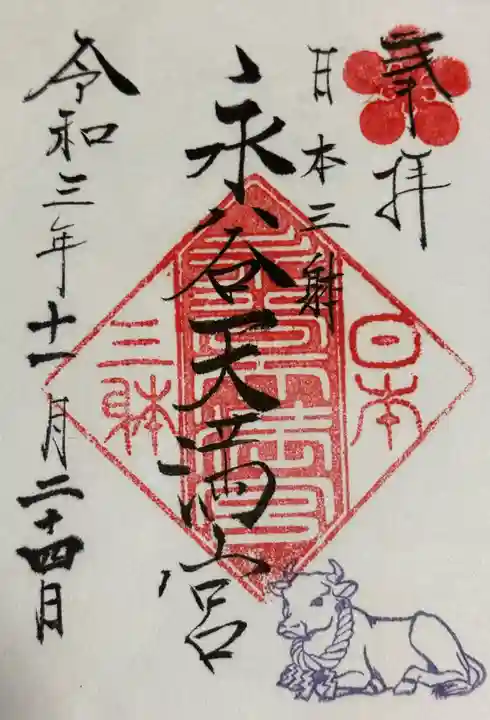 奉拝
日本三躰
永谷天満宮
令和三年十一月二十四日
日本
三躰
永谷天満宮